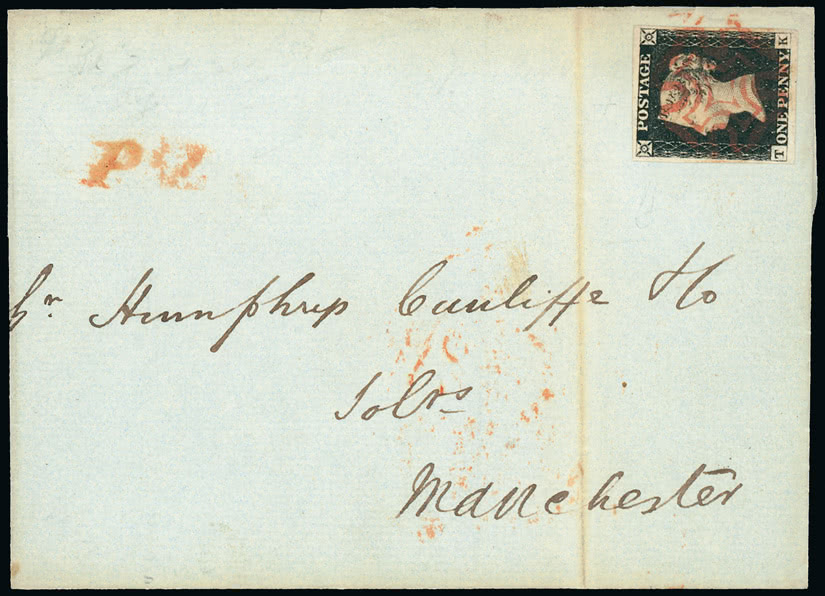 POSTAGE
T ONE PENNY K
Hr. Humphrys Cunliffe & Co
Solrs
Manchester